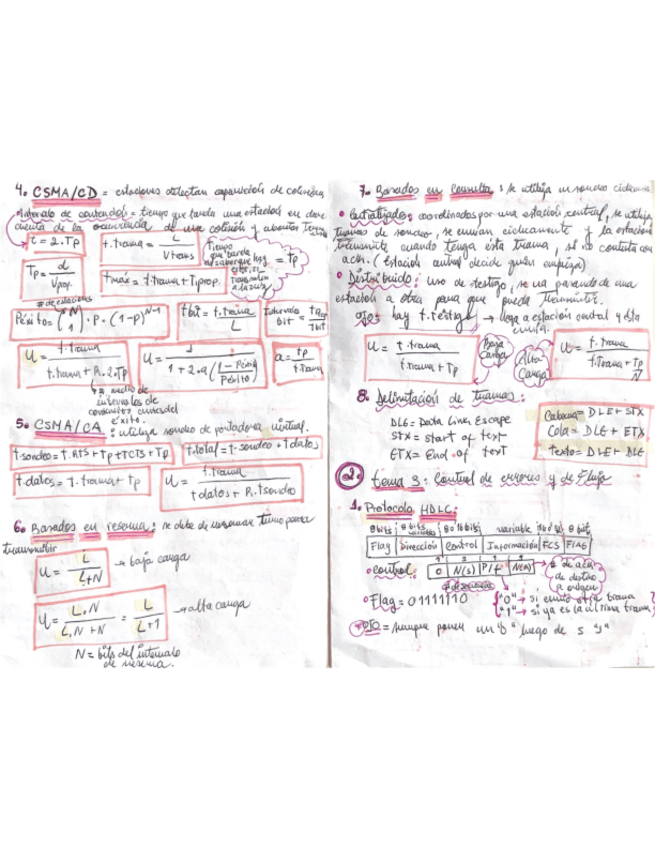 4. CSMA/CD = estaciones detectan aparición de colisión
Intervalo de contención = tiempo que tarda una estación en darse
cuenta de la ocurrencia de una colisión y abortar
τ = 2.Tp
t.trama = L / Vtrans
Tiempo que tarda en saber que hay = tp
Tp = d / Vprop.
tmax = t.trama + Tprop.
# de estaciones
Péxito = (N 1) · P · (1-P)^N-1
tbit = t.trama / L
Intervalos bit =
U = t.trama / t.trama + R.2Tp
U = 1 / 1 + 2.a (1 - Péxito / Péxito)
a = tp / t.trama
intervalos de
éxito.
5. CSMA/CA : utiliza sondeo de portadora virtual.
t.sondeo = t.RTS + Tp + TCTS + Tp
t.total = t.sondeo + t.datos
t.datos = t.trama + Tp
U = t.trama / t.datos + R.tsondeo
6. Basados en reserva: se debe de reservar tiempo para
transmitir
U = L / L+N → baja carga
U = L.N / L.N + N = L / L+1 → alta carga
N = bits del intervalo
de reserva.
7. Basados en consulta : se utiliza un sondeo
• Centralizados: coordinados por una estación central, se utilizan
tramas de sondeo, se envían cíclicamente y la estación
transmite cuando tenga esta trama, si no contesta con
ack. (Estación central decide quien empieza)
• Distribuido: uso de testigo, se va pasando de una
estación a otra para que pueda transmitir.
ojo: hay t.testigo → llega a estación central y esta
U = t.trama / t.trama + Tp
Baja Carga
Alta Carga
U = t.trama / t.trama + Tp / N
8. Delimitación de tramas:
DLE = Data Link Escape
STX = Start of text
ETX = End of text
Cabecera = DLE + STX
Cola = DLE + ETX
texto = DLE + DLE
2. tema 3: Control de errores y de Flujo
1. Protocolo HDLC:
8 bits variable 8 bits
Flag Dirección Control Información FCS FLAG
• control: 0 N(s) P/F N(R)
de destino a origen
• Flag = 01111110
"0" → si envío otra trama
"1" → si ya es la última trama
OJO = siempre poner un "0" luego de 5 "1"